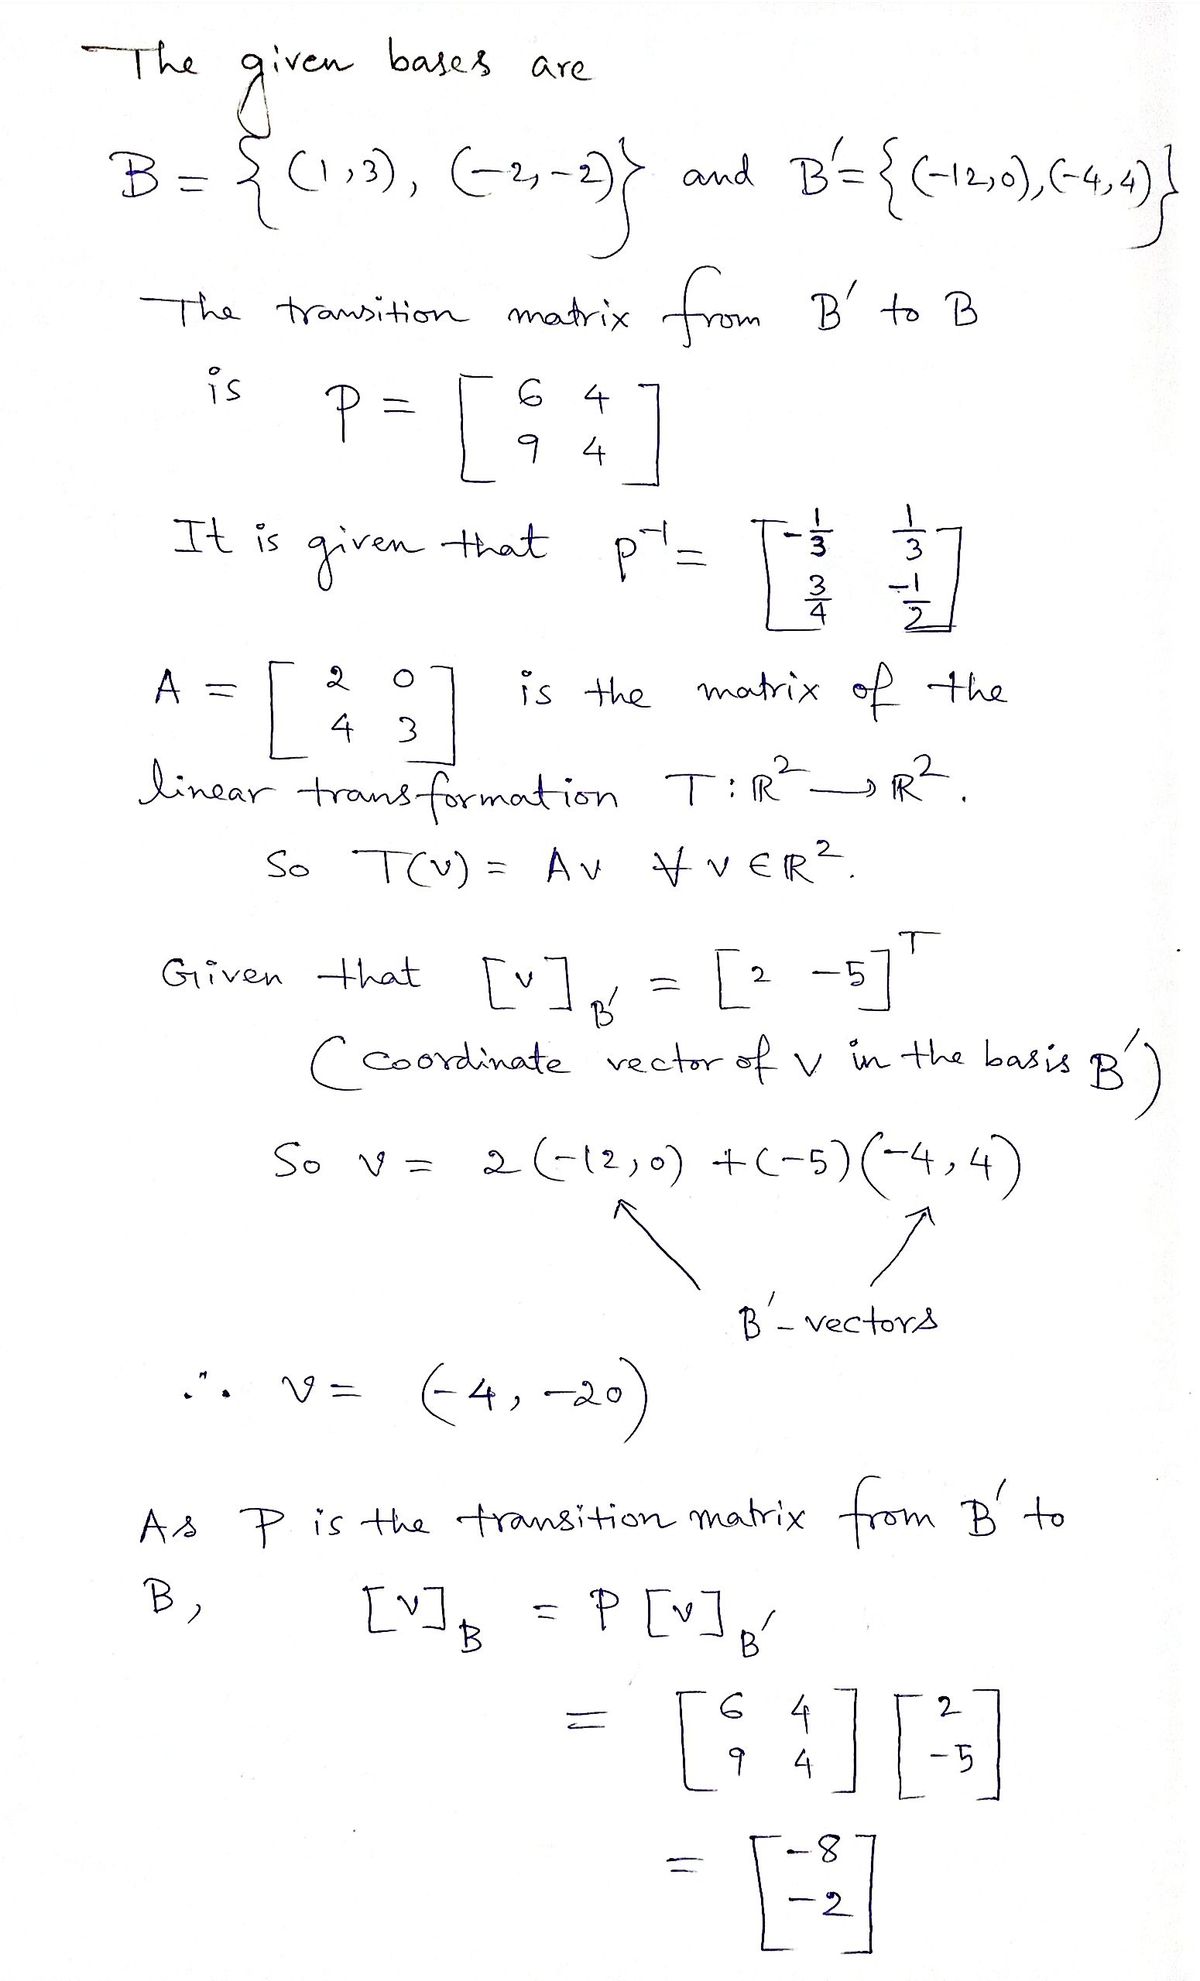 The given bases are
B = {(1,3), (-2,-2)} and B' = {(-12,0),(-4,4)}
The transition matrix from B' to B
is P = [ 6 4
9 4 ]
It is given that P⁻¹ = [ -1/3 1/3
3/4 -1/2 ]
A = [ 2 0
4 3 ] is the matrix of the
linear transformation T : ℝ² → ℝ².
So T(v) = Av ∀ v ∈ ℝ².
Given that [v]_B' = [2 -5]ᵀ
(coordinate vector of v in the basis B')
So v = 2(-12,0) + (-5)(-4,4)
B'-vectors
∴ v = (-4, -20)
As P is the transition matrix from B' to
B, [v]_B = P [v]_B'
= [ 6 4
9 4 ] [ 2
-5 ]
= [ -8
-2 ]